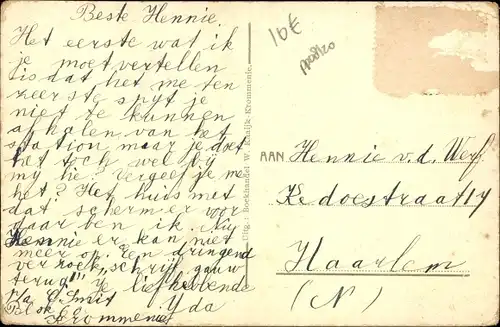 Beste Hennie,
Het eerste wat ik
je moet vertellen
is dat het me ten
zeerste spijt je
niet te kunnen
afhalen van het
station maar je doet
het toch wel bij
my hie? Vergeef je me
het? Het huis met
dat scherm er voor
daar ben ik. Nu
Hennie er kan niet
meer op. Een dringend
verzoek "schrijf gauw
terug!" Je liefhebbende
p/a C. Smit Yda
Krommenie
Uitg.: Boekhandel W. Knaijk-Krommenie.
16€
AAN Hennie v.d. Werf
Kedoestraat 14
Haarlem
(N)